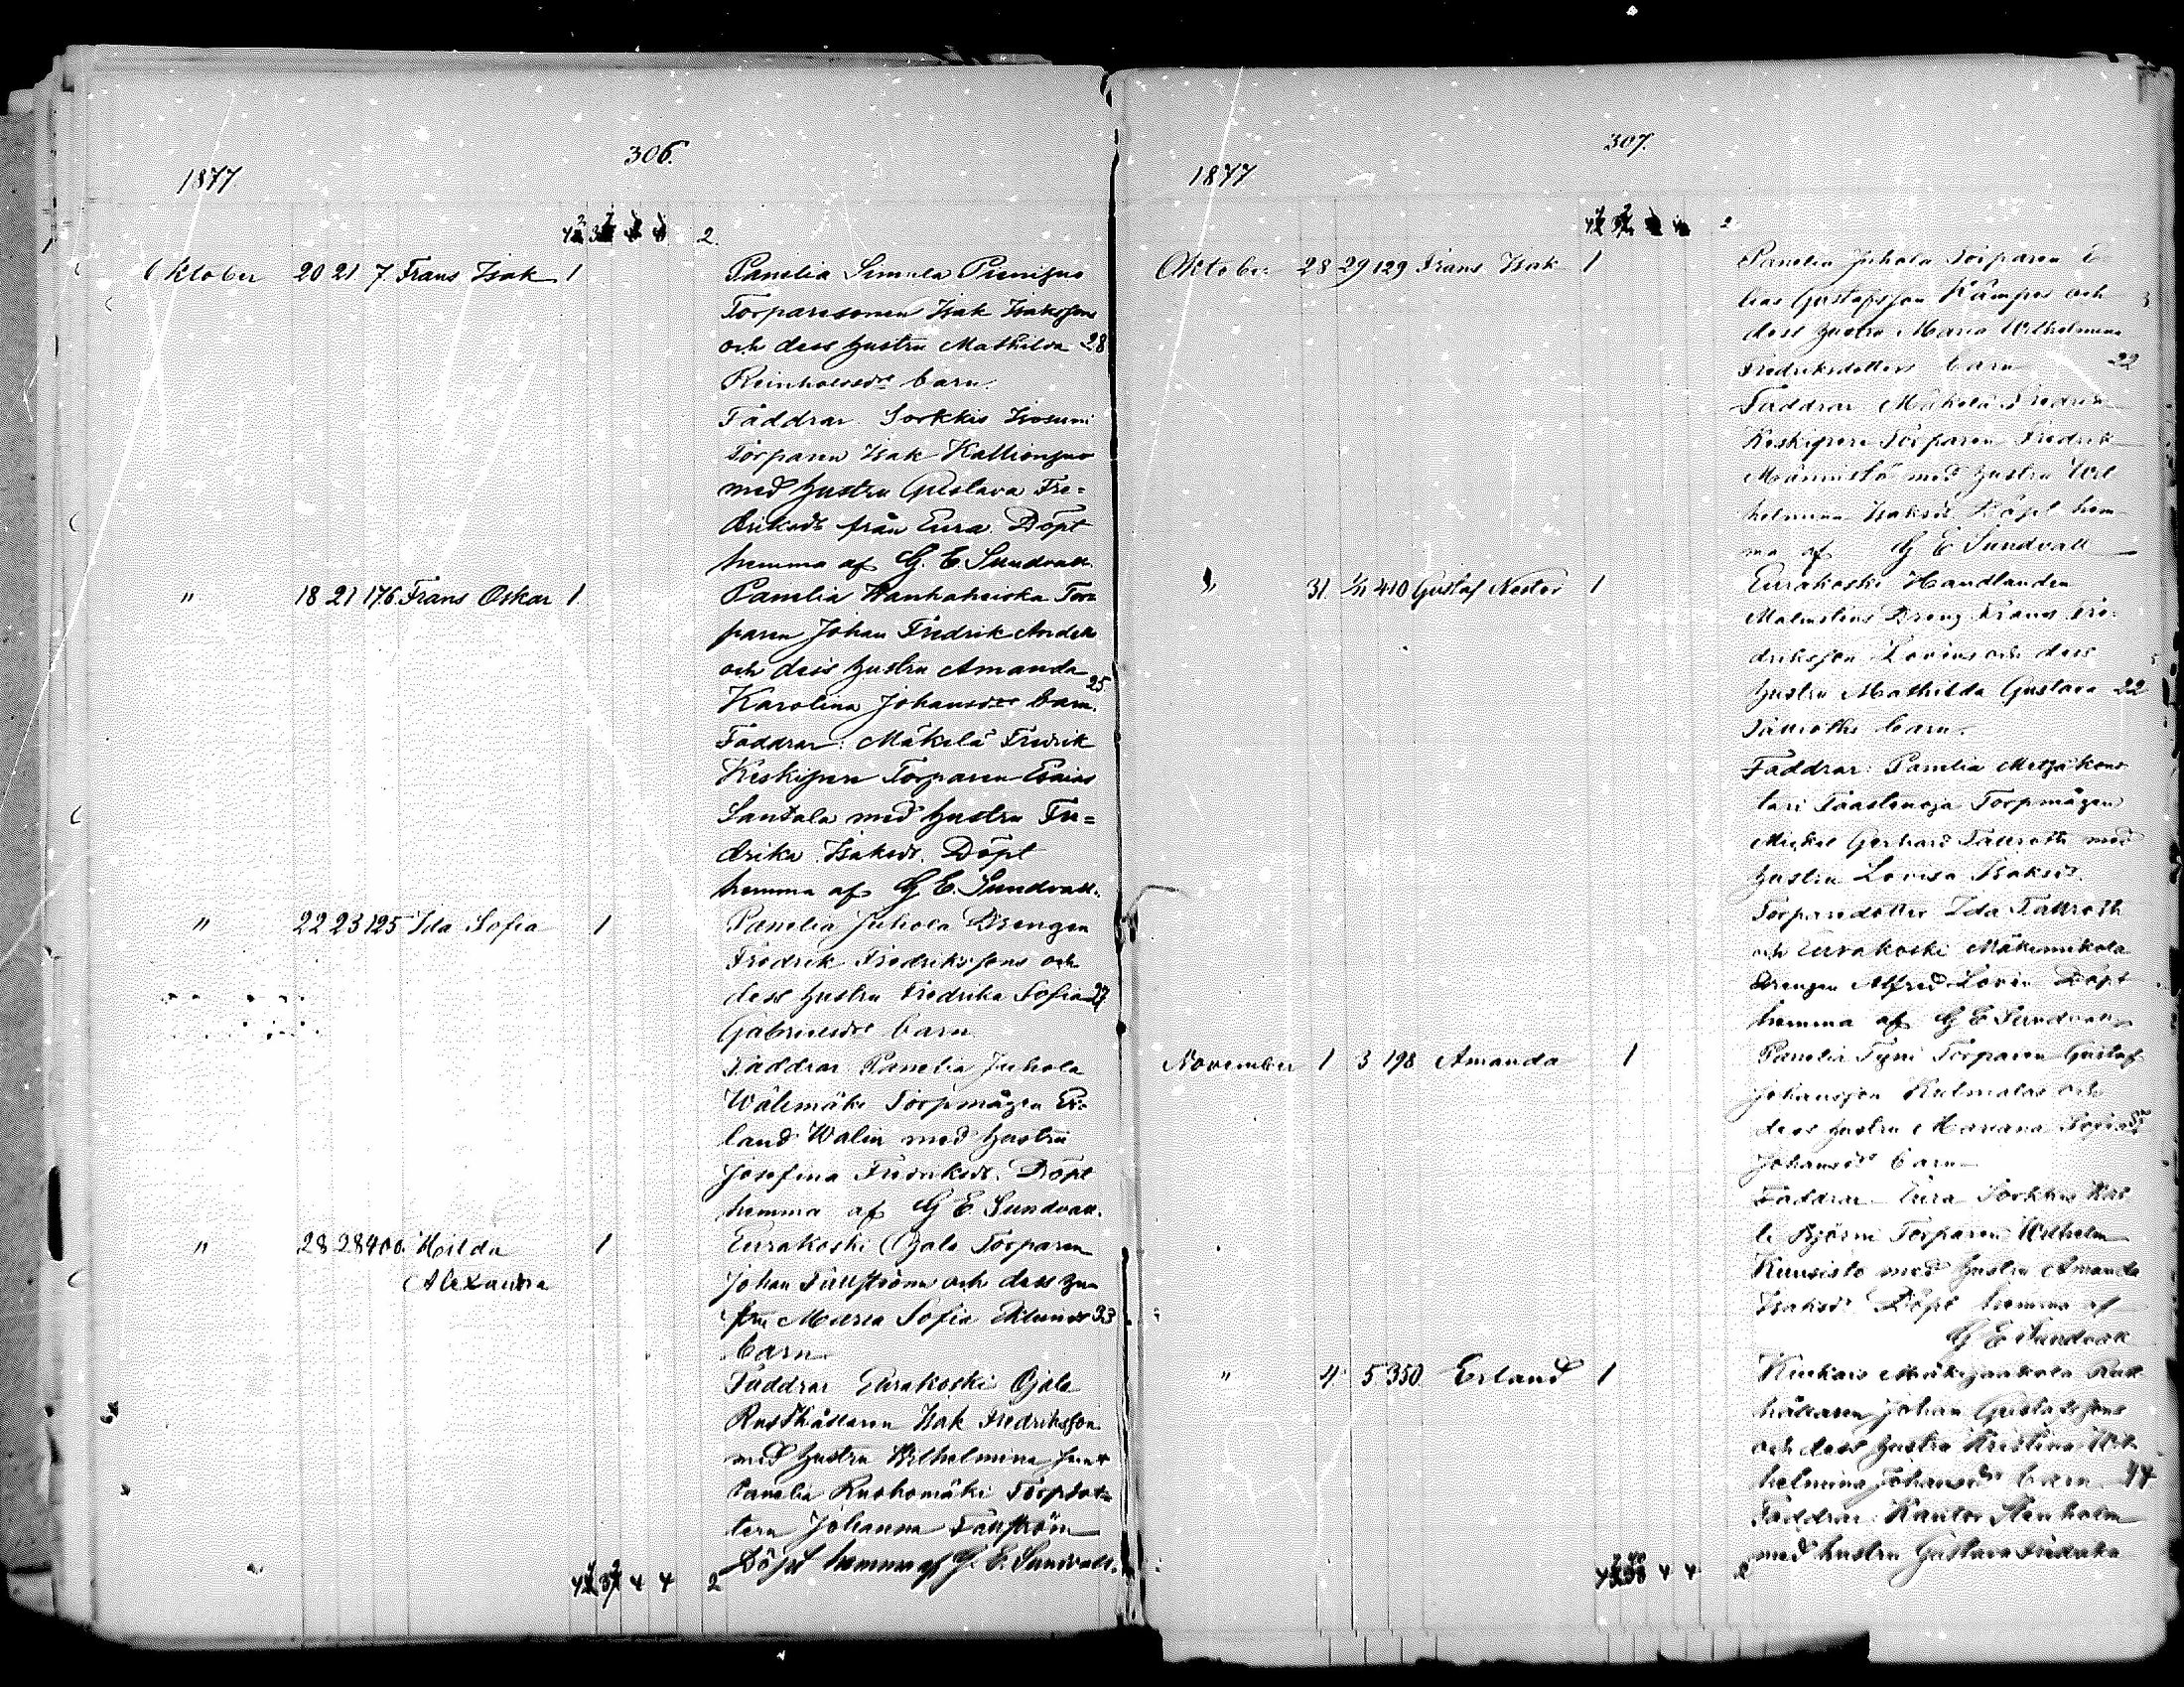 306.
1877
Oktober 20 21 7. Frans Isak 1 Panelia Simula
Torparesonen Isak Isakssons
och dess hustru Mathilda 28
Reinholdsdr barn.
Faddrar Sorkkis Isosuni
Torparen Isak Kallionpää
med hustru Gustava Fre=
driksdr från Eura. Döpt
hemma af G. E. Sundvall.
" 18 21 176. Frans Oskar 1 Panelia Tor=
paren Johan Fredrik
och dess hustru Amanda 25
Karolina Johansdr barn.
Faddrar: Mäkelä Fredrik
Torparen Esaias
Santala med hustru Fre=
drika Isaksdr. Döpt
hemma af G E. Sundvall.
" 22 23 125 Ida Sofia 1 Panelia Juhola Drengen
Fredrik Fredrikssons och
dess hustru Fredrika Sofia 27
Gabrielsdr barn
Faddrar Panelia Juhola
Wälimäki Torpmågen Er=
land Walin med hustru
Josefina Fredriksdr. Döpt
hemma af G E. Sundvall.
" 28 28 400. Hilda 1 Eurakoski Ojala Torparen
Alexandra Johan Tällström och dess hu=
stru Maria Sofia Eklunds 33
barn
Faddrar Eurakoski Ojala
Rusthållaren Isak Fredriksson
med hustru Wilhelmina samt
Panelia Ruohomäki Torpdot=
tern Johanna Tällström
Döpt hemma af G. E. Sundvall.
4 4 2
307.
1877
2
Oktober 28 29 129 Frans Isak 1 Panelia Juhola Torparen E=
lias Gustafsson Kämpes och
dess hustru Maria Wilhelmina
Fredriksdotters barn 22
Faddrar Mäkelä Fredrik
Torparen Fredrik
Männistö med hustru Wil
helmina Isaksdr Döpt hem=
ma af G E Sundvall
" 31 1/11 410 Gustaf Nestor 1 Eurakoski Handlanden
Malmelins Dreng Frans Fre=
driksson Lovins och dess
hustru Mathilda Gustava 22
Tallroths barn.
Faddrar: Panelia
Torpmågen
Mickel Gerhard Tallroth med
hustru Lovisa Isaksdr.
Torparedotter Ida Tallroth
och Eurakoski
drengen Alfred Lovin Döpt
hemma af G E Sundvall
November 1 3 198 Amanda 1 Panelia Tyni Torparen Gustaf
Johansson Kulmalas och
dess hustru Mariana Sofia
Johansdr barn
Faddrar Eura Sorkkis
Torparen Wilhelm
Kuusisto med hustru Amanda
Isaksdr Döpt hemma af
G E Sundvall
" 4 5 350 Erland 1 Kiukais Mäkijaakola Rust
hållaren Johan Gustafssons
och dess hustru Kristina Wil
helmina Johansdr barn 44
Faddrar: Kantor Stenholm
med hustru Gustava Fredrika
4 4